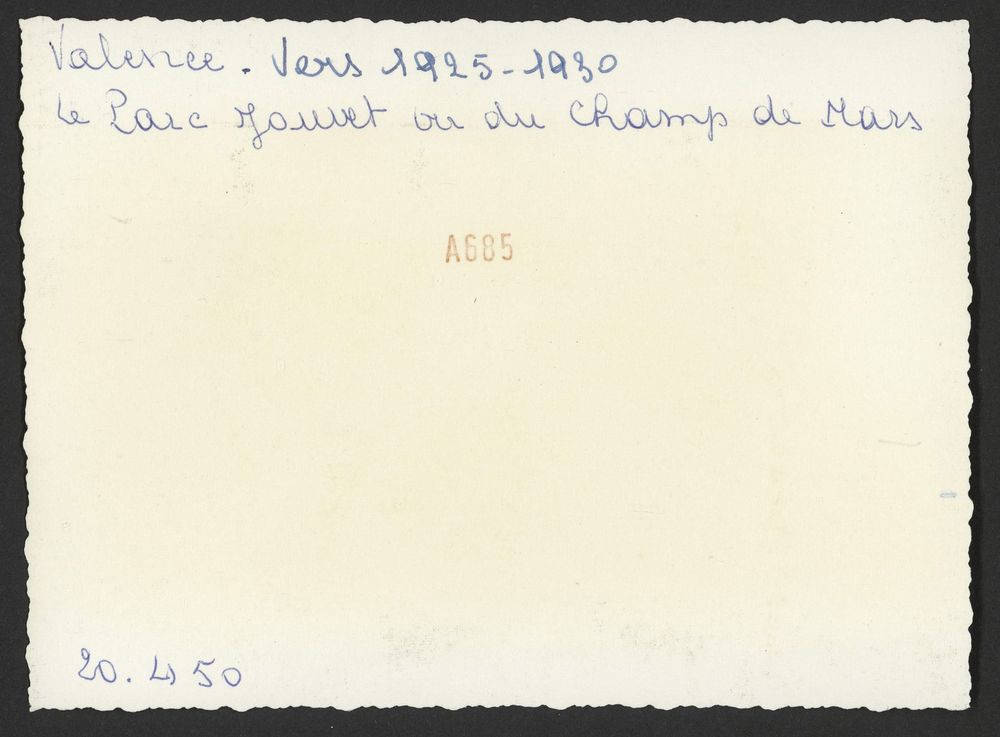 Valence. Vers 1925-1930
Le Parc Jouvet ou du Champ de Mars
A685
20.450